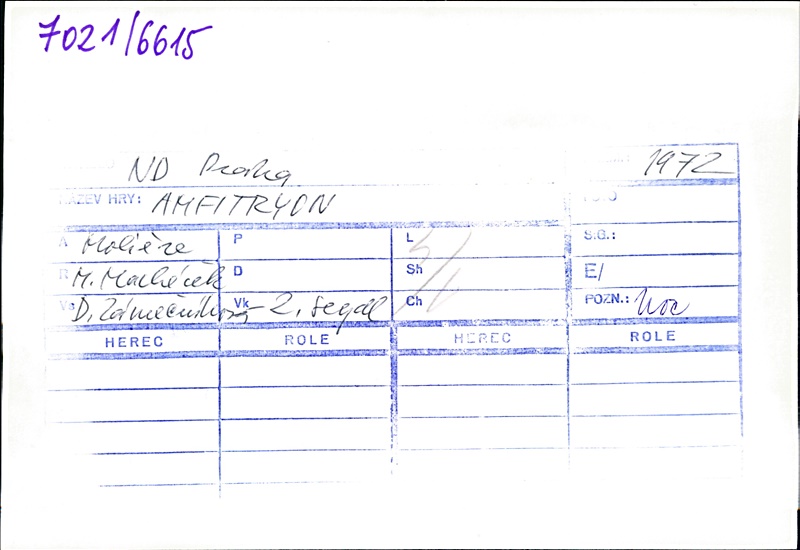 7021/6615
ND Praha 1972
NÁZEV HRY: AMFITRYON
A Molière P L S.G.:
R M. Macháček D Sh E/
D. Zámečníková Vk Z. Seydl Ch POZN.: Noc
HEREC ROLE HEREC ROLE